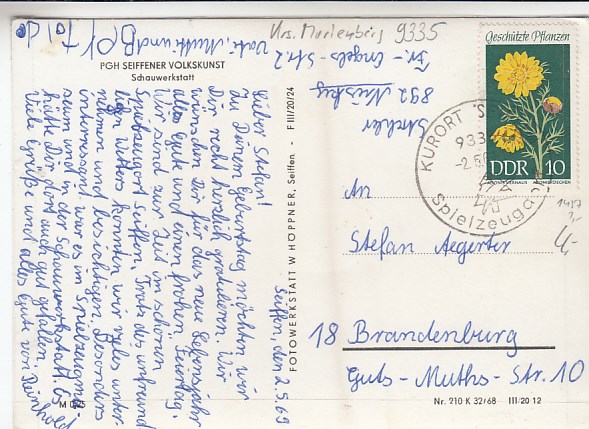 Krs. Marienberg 9335
PGH SEIFFENER VOLKSKUNST
Schauwerkstatt
Seiffen, den 2.5.69
Lieber Stefan!
Zu Deinem Geburtstag möchten wir
Dir recht herzlich gratulieren. Wir
wünschen Dir für das neue Lebensjahr
alles Gute und einen frohen Feiertag.
Wir sind zur Zeit im schönen
Spielzeugort Seiffen. Trotz des unfreund
lichen Wetters konnten wir vieles unter-
nehmen und besichtigen. Besonders
interessant war es im Spielzeugmu-
seum und in der Schauwerkstatt. Es
hätte Dir dort auch gut gefallen.
Viele Grüße und alles Gute von Reinhold
Vati, Mutti und
M 1525
FOTOWERKSTATT W HÖPPNER, Seiffen - F III/20/24
Fr.-Engels-Str. 2
892 Niesky
Geschützte Pflanzen
DDR 10
ADONISRÖSCHEN
KURORT
933
-2.5.
Spielzeug
1417
An
Stefan Aegerter
18 Brandenburg
Guts-Muths-Str. 10
Nr. 210 K 32/68 III/20 12